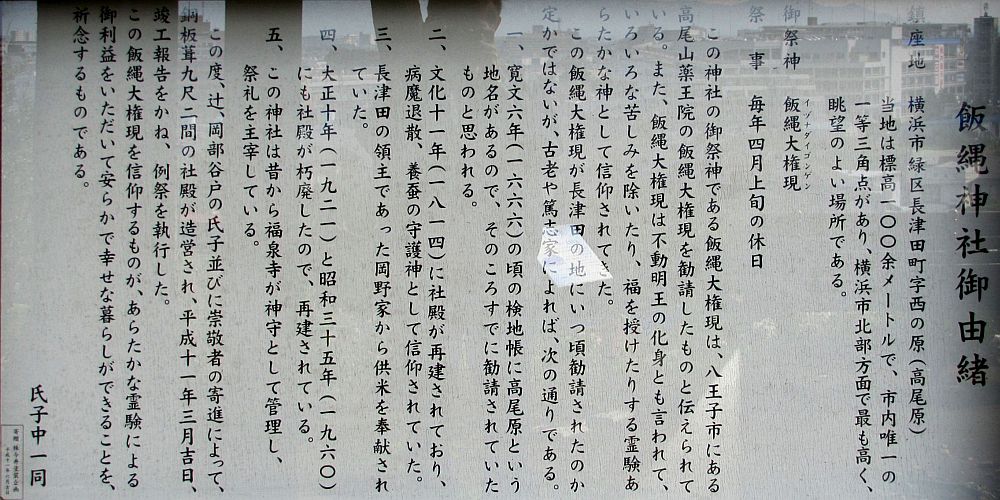 飯縄神社御由緒
鎮座地　横浜市緑区長津田町字西の原（高尾原）
当地は標高一〇〇余メートルで、市内唯一の
一等三角点があり、横浜市北部方面で最も高く、
眺望のよい場所である。
御祭神　飯縄大権現
イヅナダイゴンゲン
祭　事　毎年四月上旬の休日
この神社の御祭神である飯縄大権現は、八王子市にある
高尾山薬王院の飯縄大権現を勧請したものと伝えられて
いる。また、飯縄大権現は不動明王の化身とも言われて、
いろいろな苦しみを除いたり、福を授けたりする霊験あ
らたかな神として信仰されてきた。
この飯縄大権現が長津田の地にいつ頃勧請されたのか
定かではないが、古老や篤志家によれば、次の通りである。
一、寛文六年（一六六六）の頃の検地帳に高尾原という
地名があるので、そのころすでに勧請されていた
ものと思われる。
二、文化十一年（一八一四）に社殿が再建されており、
病魔退散、養蚕の守護神として信仰されていた。
三、長津田の領主であった岡野家から供米を奉献され
ていた。
四、大正十年（一九二一）と昭和三十五年（一九六〇）
にも社殿が朽廃したので、再建されている。
五、この神社は昔から福泉寺が神守として管理し、
祭礼を主宰している。
この度、辻、岡部谷戸の氏子並びに崇敬者の寄進によって、
銅板葺九尺二間の社殿が造営され、平成十一年三月吉日、
竣工報告をかね、例祭を執行した。
この飯縄大権現を信仰するものが、あらたかな霊験による
御利益をいただいて安らかで幸せな暮らしができることを、
祈念するものである。
氏子中一同